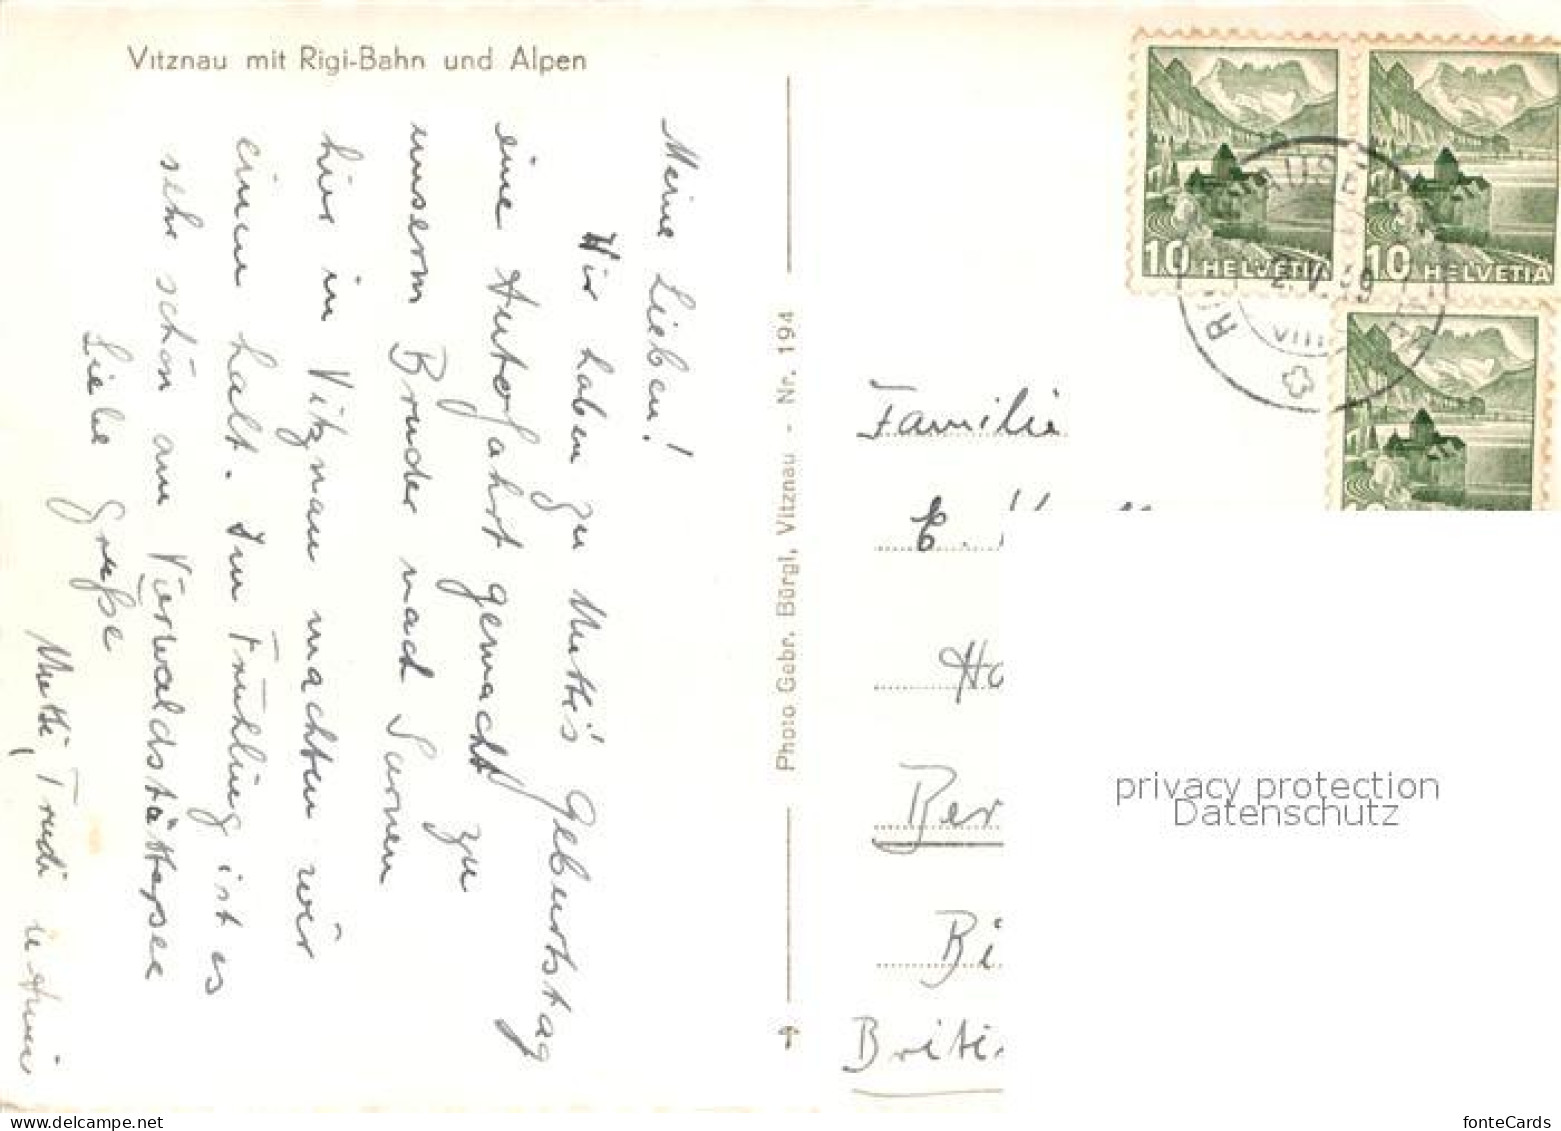 Vitznau mit Rigi-Bahn und Alpen
Meine Lieben!
Wir haben zu Mutti's Geburtstag
eine Autofahrt gemacht zu
unserm Bruder nach Sarnen
hier in Vitznau machten wir
einen halt. Im Frühling ist es
sehr schön am Vierwaldstättersee
Liebe Grüße
Mutti, Trudi u.
Photo Gebr. Bürgi, Vitznau - Nr. 194
10 HELVETIA
10 HELVETIA
VIII
Familie
E.
Ho
Ber
Bi
Briti
privacy protection
Datenschutz
delcampe.net
fonteCards